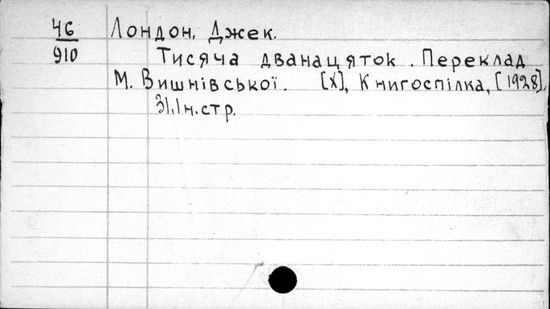 46 Лондон, Джек.
910 Тисяча дванацяток. Переклад
М. Вишнівської. [Х], Книгоспілка, [1928].
31,1 н.стр.